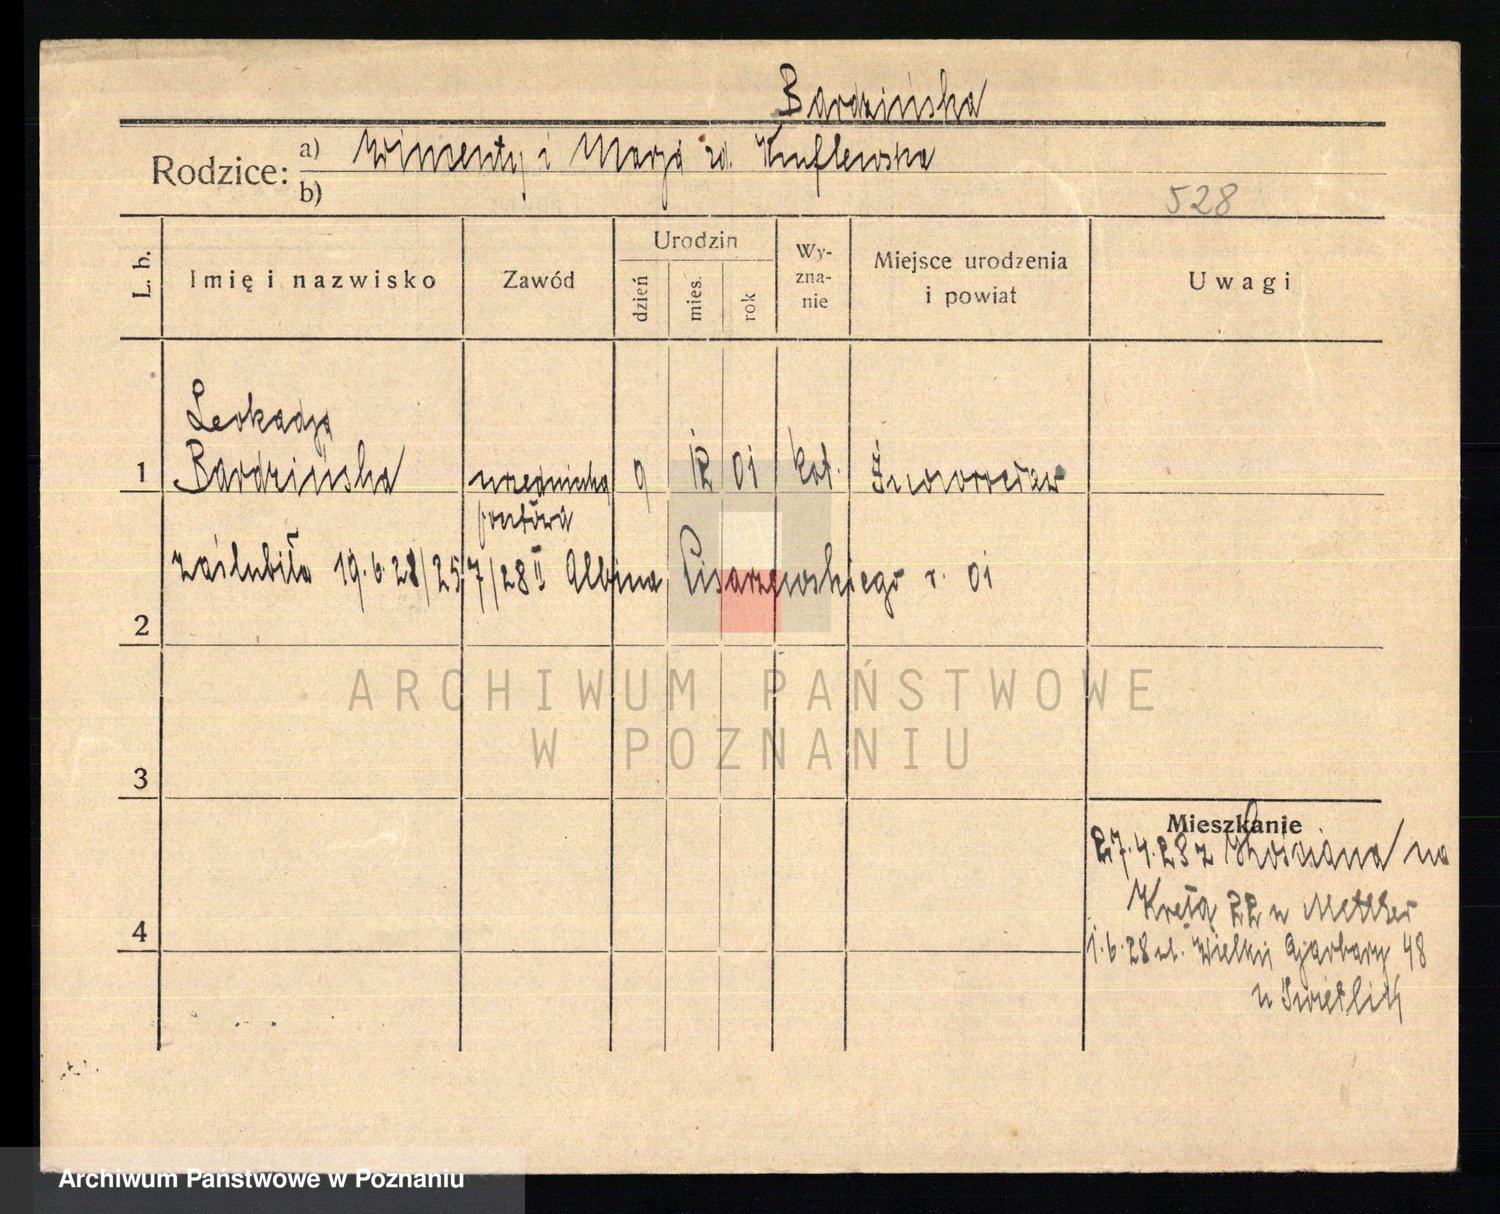 Bardzińska
Rodzice: a) Wincenty i Marja zd. Kuflewska
b)
528
L. b. Imię i nazwisko Zawód Urodzin dzień mies. rok Wy-zna-nie Miejsce urodzenia i powiat Uwagi
Leokadja
1 Bardzińska urzędniczka 9 12 01 kat. Inowrocław
pocztowa
zaślubiła 19.6.28/25/7/28 II Albina Pisarzewskiego r. 01
2
ARCHIWUM PAŃSTWOWE
W POZNANIU
3
Mieszkanie
27.4.28 z Kościana na
Kręta 22 u
4
1.6.28 ul. Wielkie Garbary 48
u Świetlik
Archiwum Państwowe w Poznaniu